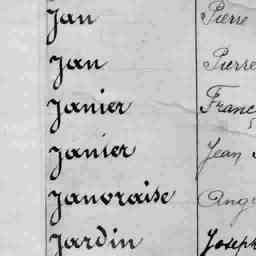 Jan Pierre
Jan Pierre
Janier Franc
Janier Jean
Janvraise Ang
Jardin Joseph